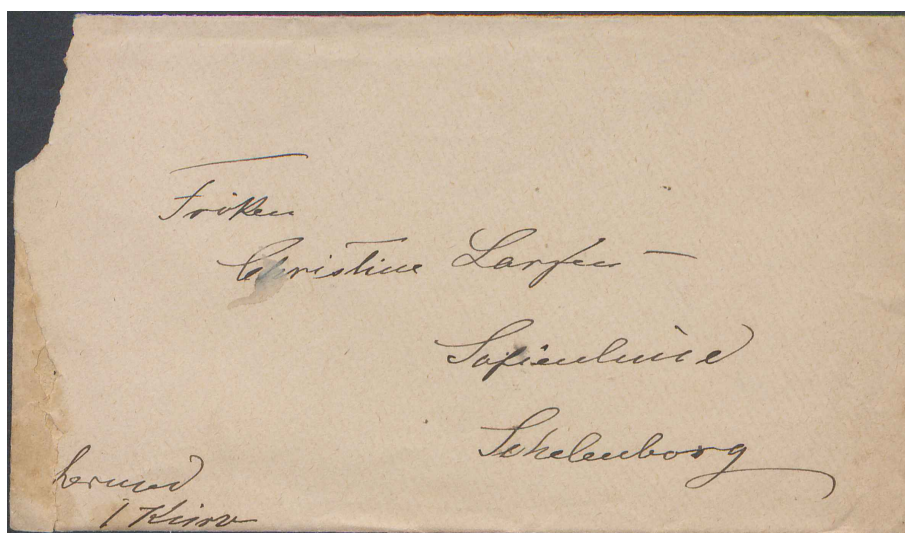 Frøken
Christine Larsen –
Sofienlund
Schelenborg
hermed
1 Kurv